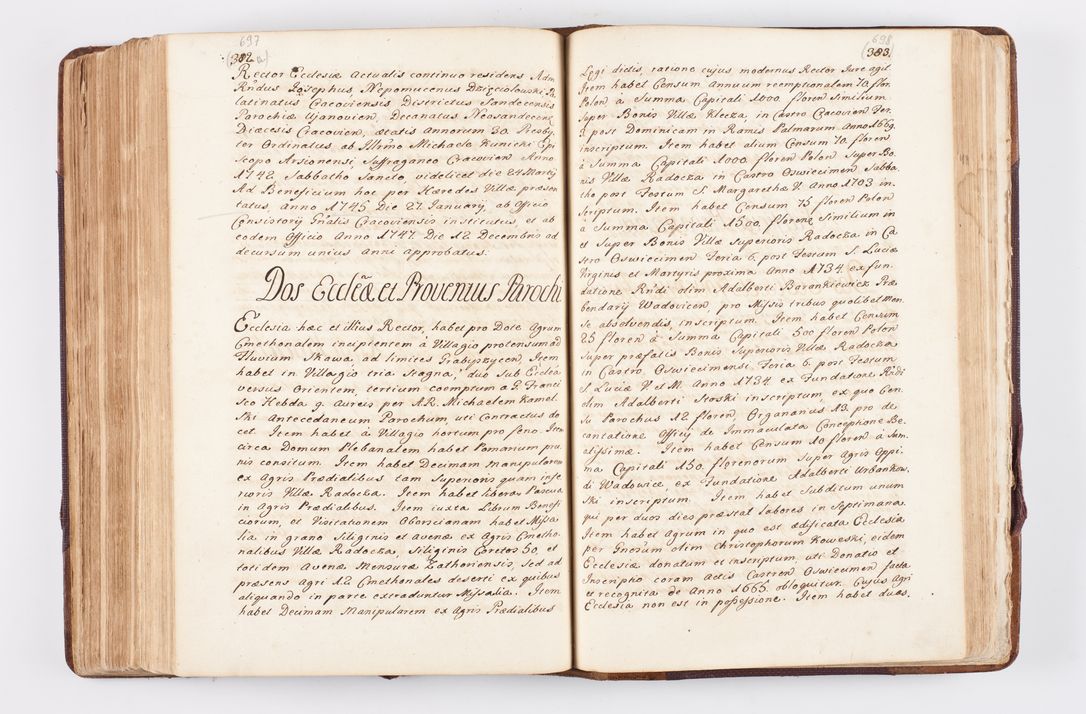 697
(382 a)
Rector Ecclesiæ actualis continuo residens Adm
Rndus Josephus Nepomucenus Dzięciołowski Pa
latinatus Cracoviensis Districtus Sandecensis
Parochiæ Ujanovien, Decanatus Neosandecens
Diæcesis Cracovien, ætatis annorum 30. Presby
ter Ordinatus ab Illmo Michaele Kunicki Epi
scopo Arsionensi, Suffraganeo Cracovien Anno
1742. Sabbatho Sancto, videlicet die 24 Martij
Ad Beneficium hoc per Hæredes Villæ præsen
tatus, Anno 1745. Die 27. January, ab Officio
Consistorij Gnalis Cracoviensis institutus, et ab
eodem Officio Anno 1747. Die 12 Decembris ad
decursum unius Anni approbatus.
Dos Ecclæ et Proventus Parochi
Ecclesia hæc et illius Rector, habet pro Dote Agrum
Cmethonalem incipientem à Villagio protensum ad
Fluvium Skawa ad limites Grabyszycen, Item
habet in Villagio tria Stagna, duo sub Ecclesia
versus Orientem, tertium coemptum a P. Franci
sco Hebda 9. Aureis per A.R. Michaelem Kamel
ski Antecedaneum Parochum, uti Contractus do
cet. Item habet à Villagio hortum pro feno. Item
circa Domum Plebanalem habet Pomarium pru
nis consitum. Item habet Decimam manipularem
ex Agris Prædialibus tam Superioris quam infe
rioris Villæ Radocza. Item habet libera Pascua
in Agris Prædialibus. Item iuxta Librum Benefi
ciorum, et Visitationem Oborscianam habet Missa
lia in grano Siliginis et avenæ ex Agris Cmetho
nalibus Villæ Radocza, Siliginis Coretos 50, et
totidem Avenæ Mensuræ Zathoriensis, Sed ad
præsens agri 12 Cmethonales deserti ex quibus
aliquando in parte extraduntur Missalia. Item
habet Decimam Manipularem ex Agris Prædialibus
698
(383)
Legi dictis, ratione cujus modernus Rector Jure agit
Item habet Censum Annuum reemptionalem 70. flor
Polon à Summa Capitali 1000 floren Similium
Super Bonis Villæ Klecza, in Castro Cracovien Fer.
2 post Dominicam in Ramis Palmarum Anno 1669.
inscriptum. Item habet alium Censum 70. floren
à Summa Capitali 1000 floren Polon Super Bo
nis Villæ Radocza in Castro Oswiecimen Sabba
tho post Festum S. Margarethæ V. Anno 1703 in
scriptum. Item habet Censum 75 floren Polon
à Summa Capitali 1500, floren Similium in
et Super Bonis Villæ superioris Radocza in Ca
stro Oswiecimen Feria 6. post Festum S. Luciæ
Virginis et Martyris proxima Anno 1734 ex fun
datione Rndi olim Adalberti Barankiewicz Præ
bendarij Wadovicen, pro Missis tribus quolibet Men
se absolvendis, inscriptum. Item habet Censum
25 floren à Summa Capitali 500 floren Polon
super præfatis Bonis Superioris Villæ Radocza
in Castro Oswiecimensi Feria 6. post Festum
S. Luciæ V. et M. Anno 1734. ex Fundatione Rndi
olim Adalberti inscriptum, ex quo Cen
su Parochus 12 floren, Organarius 13. pro de
cantatione Officij de Immaculata Conceptione Be
atissimæ. Item habet Censum 10 floren à Sum
ma Capitali 150. florenorum Super Agris Oppi
di Wadowice ex Fundatione Adalberti Urbankow
ski inscriptum. Item habet Subditum unum
qui per duos dies præstat labores in Septimana
Item habet Agrum in quo est ædificata Ecclesia
per Gnosum olim Christophorum Koweski, eidem
Ecclesiæ donatum et inscriptum, uti Donatio et
Inscriptio coram actis Castren Oswiecimen facta
et recognita de Anno 1665. obloquitur. Cujus Agri
Ecclesia non est in possessione. Item habet duos.